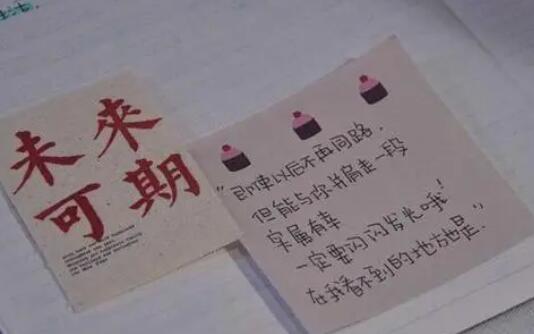 未來
可期
“即使以后不再同路,
但能与你并肩走一段
实属有幸
一定要闪闪发光哦!
在我看不到的地方也是.”